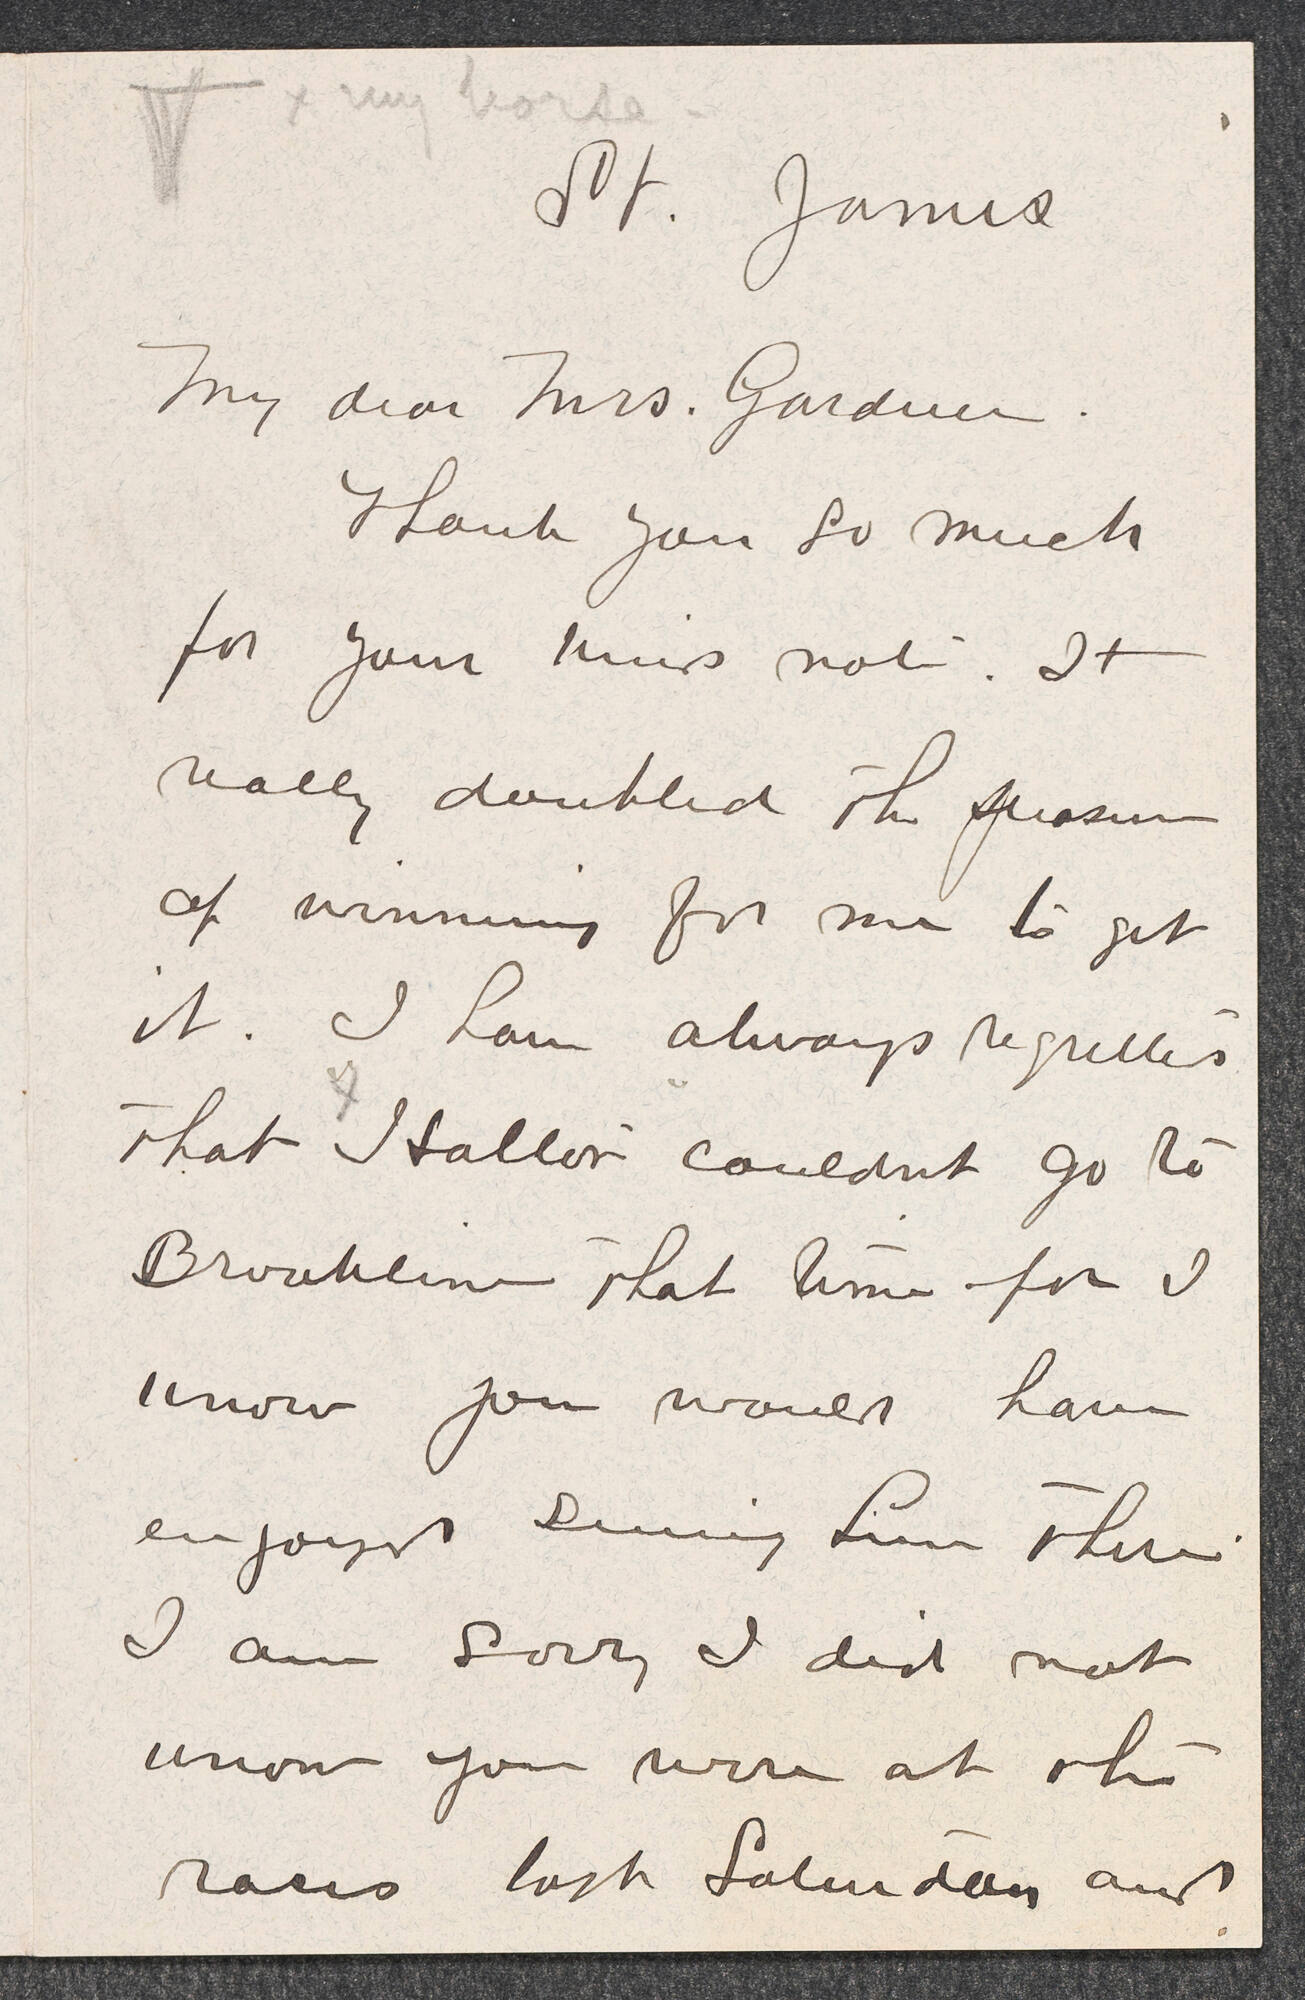 x my horse -
St. James
My dear Mrs. Gardner.
Thank you so much
for your kind note. It
really doubled the pleasure
of winning for me to get
it. I have always regretted
that Halloo couldnt go to
Brookline that time for I
know you would have
enjoyed seeing him there.
I am sorry I did not
know you were at the
races last Saturday and